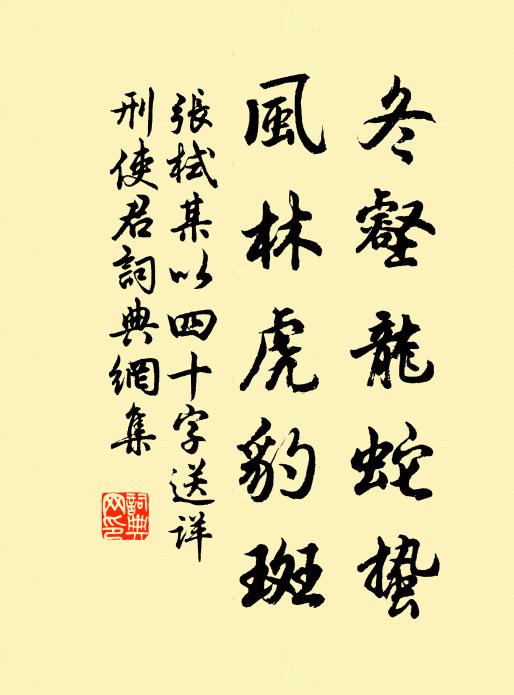 冬壑龍蛇蟄
風林虎豹斑
張栻某以四十字送詳
刑使君詞典網集
詞典網印